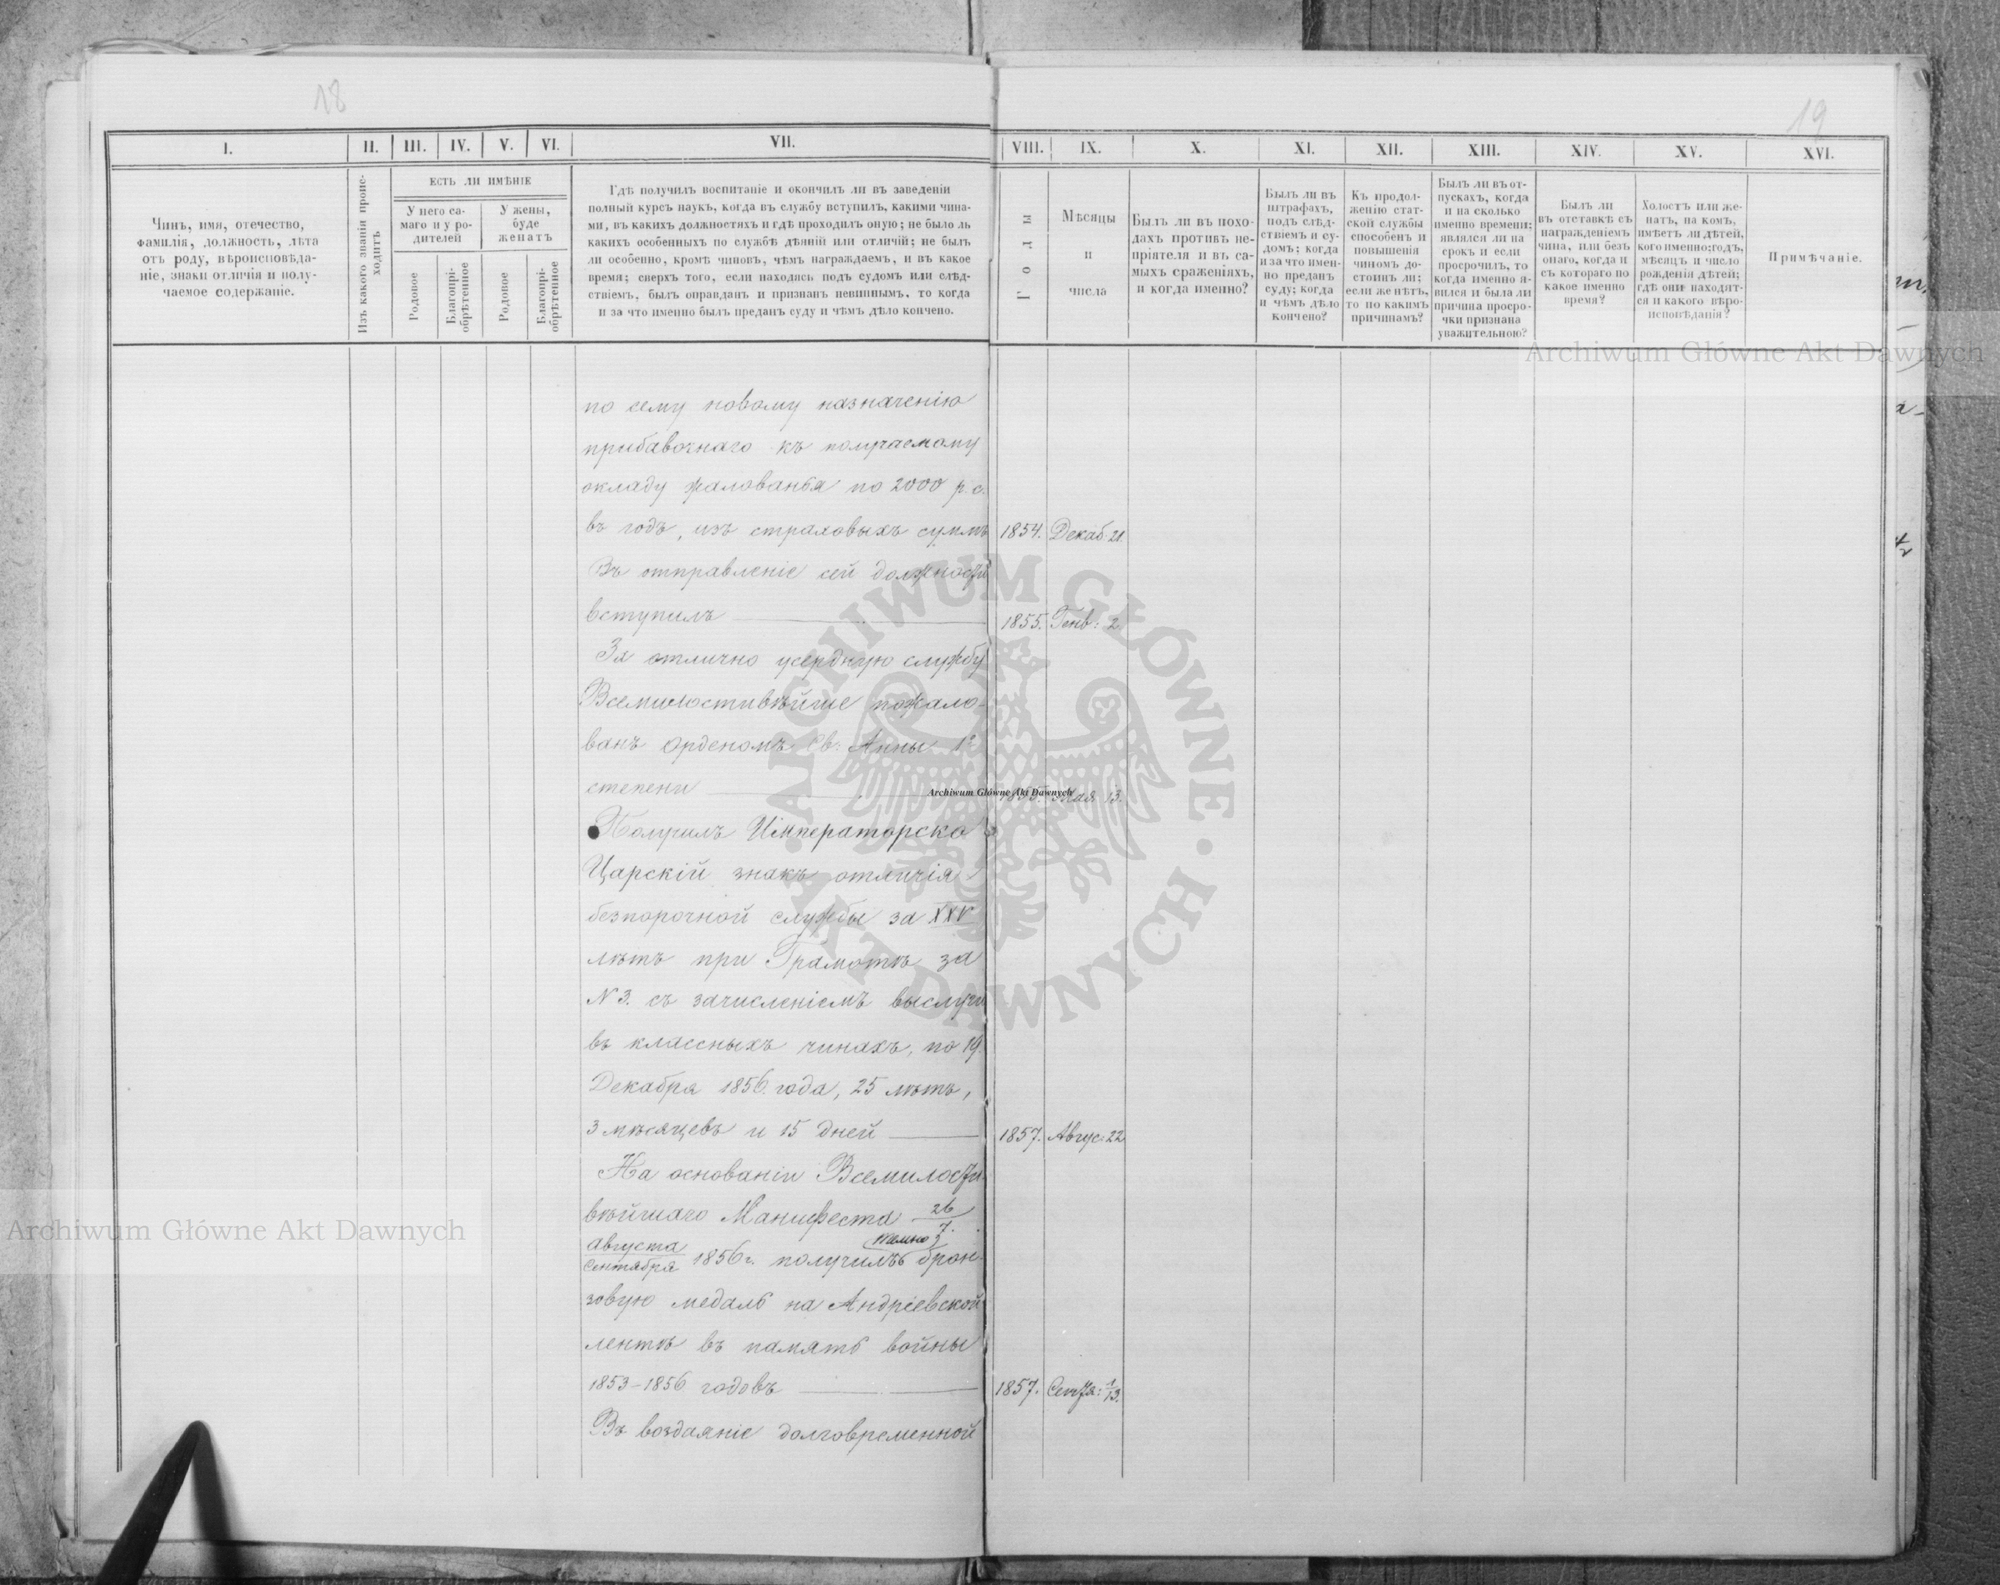 18
19
I.
II.
III.
IV.
V.
VI.
VII.
VIII.
IX.
X.
XI.
XII.
XIII.
XIV.
XV.
XVI.
Чинъ, имя, отечество,
фамилія, должность, лѣта
отъ роду, вѣроисповѣда-
ніе, знаки отличія и полу-
чаемое содержаніе.
Изъ какого званія проис-
ходитъ
ЕСТЬ ЛИ ИМѢНІЕ
У него са-
маго и у ро-
дителей
У жены,
буде
женатъ
Родовое
Благопрі-
обрѣтенное
Родовое
Благопрі-
обрѣтенное
Гдѣ получилъ воспитаніе и окончилъ ли въ заведеніи
полный курсъ наукъ, когда въ службу вступилъ, какими чина-
ми, въ какихъ должностяхъ и гдѣ проходилъ оную; не было ль
какихъ особенныхъ по службѣ дѣяній или отличій; не былъ
ли особенно, кромѣ чиновъ, чѣмъ награждаемъ, и въ какое
время; сверхъ того, если находясь подъ судомъ или слѣд-
ствіемъ, былъ оправданъ и признанъ невиннымъ, то когда
и за что именно былъ преданъ суду и чѣмъ дѣло кончено.
Годы
Мѣсяцы
и
числа
Былъ ли въ похо-
дахъ противъ не-
пріятеля и въ са-
мыхъ сраженіяхъ,
и когда именно?
Былъ ли въ
штрафахъ,
подъ слѣд-
ствіемъ и су-
домъ; когда
и за что имен-
но преданъ
суду; когда
и чѣмъ дѣло
кончено?
Къ продол-
женію стат-
ской службы
способенъ и
повышенія
чиномъ до-
стоинъ ли;
если же нѣтъ,
то по какимъ
причинамъ?
Былъ ли въ от-
пускахъ, когда
и на сколько
именно времени;
явился ли на
срокъ и если
просрочилъ, то
когда именно я-
вился и была ли
причина просро-
чки признана
уважительною?
Былъ ли
въ отставкѣ съ
награжденіемъ
чина, или безъ
онаго, когда и
съ котораго по
какое именно
время?
Холостъ или же-
натъ, на комъ,
имѣетъ ли дѣтей,
кого именно; годъ,
мѣсяцъ и число
рожденія дѣтей;
гдѣ они находят-
ся и какого вѣро-
исповѣданія?
Примѣчаніе.
по сему новому назначенію
прибавочнаго къ получаемому
окладу жалованья по 2000 р. с.
въ годъ, изъ страховыхъ суммъ 1854. Декаб 21.
Въ отправленіе сей должности
вступилъ 1855. Генв: 2.
За отлично усердную службу
Всемилостивѣйше пожало-
ванъ Орденомъ Св: Анны 1й
степени 1855. Мая 13.
Получилъ Императорско
Царскій знакъ отличія
безпорочной службы за XXV
лѣтъ при Грамотѣ за
N 3. съ зачисленіемъ выслуги
въ классныхъ чинахъ, по 19.
Декабря 1856 года, 25 лѣтъ,
3 мѣсяцевъ и 15 дней 1857. Авгус. 22
На основаніи Всемилости-
вѣйшаго Манифеста 26/7.
Августа/Сентября 1856 г. получилъ темно брон-
зовую медаль на Андріевской
лентѣ въ память войны
1853-1856 годовъ 1857. Сентя: 1/13.
Въ воздаяніе долговременной
Archiwum Główne Akt Dawnych
Archiwum Główne Akt Dawnych
Archiwum Główne Akt Dawnych
ARCHIWUM GŁÓWNE · AKT DAWNYCH ·